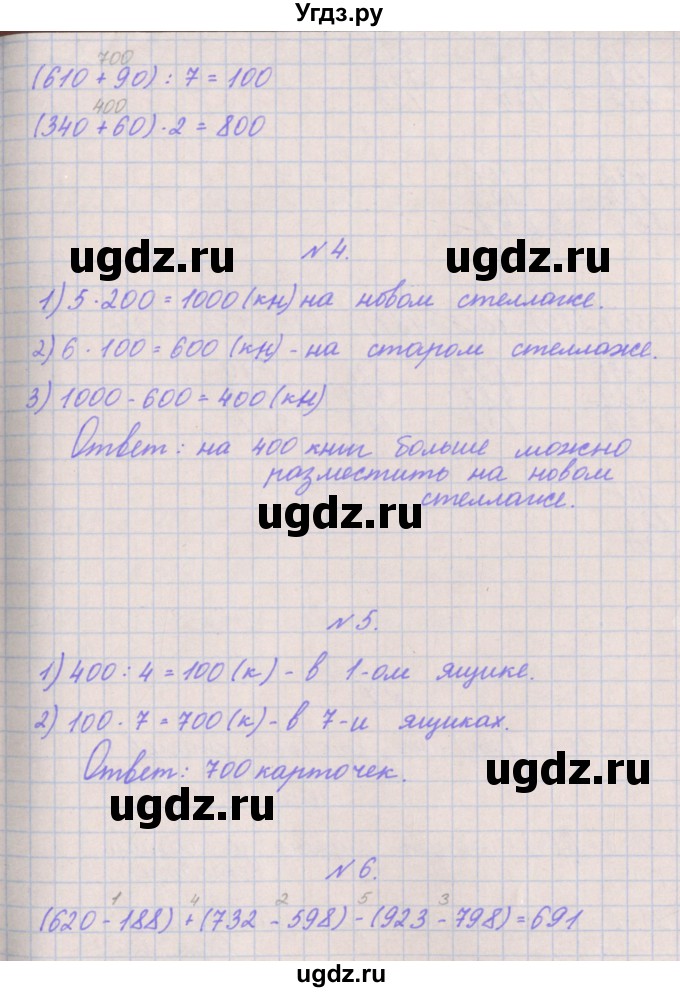 Угдз.ру
700
(610 + 90) : 7 = 100
400
(340 + 60) · 2 = 800
ugdz.ru ugdz.ru
№ 4.
1) 5 · 200 = 1000 (кн) на новом стеллаже.
2) 6 · 100 = 600 (кн) - на старом стеллаже.
3) 1000 - 600 = 400 (кн)
Ответ: на 400 книг больше можно
разместить на новом
стеллаже.
ugdz.ru
№ 5.
1) 400 : 4 = 100 (к) - в 1-ом ящике.
2) 100 · 7 = 700 (к) - в 7-и ящиках.
Ответ: 700 карточек.
ugdz.ru
ugdz.ru
№ 6.
1 4 2 5 3
(620 - 188) + (732 - 598) - (923 - 798) = 691
ugdz.ru